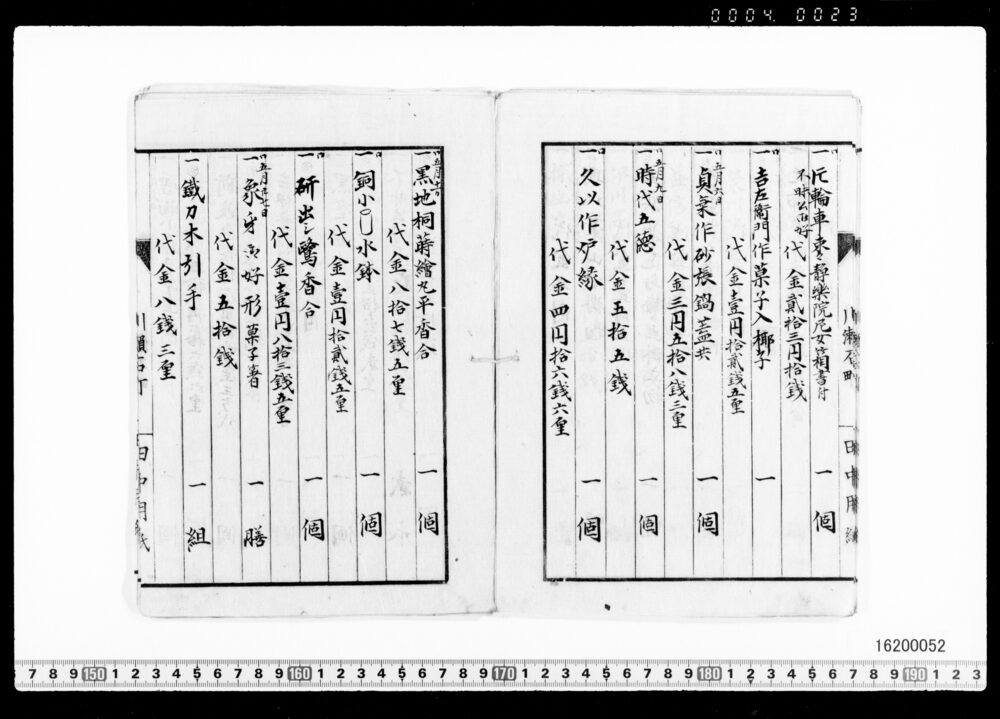 0004 0023
一 片輪車棗 静楽院尼女箱書付 一 個
不時公御好
代金貳拾三円拾銭
一 吉左衛門作菓子入 椰子 一
代金壹円拾貳銭五厘
五月六日
一 貞葉作砂張鍋蓋共 一 個
代金三円五拾八銭三厘
五月九日
一 時代五徳 一 個
代金五拾五銭
一 久以作炉縁 一 個
代金四円拾六銭六厘
五月十一日
一 黒地桐蒔繪丸平香合 一 個
代金八拾七銭五厘
一 銅小 水鉢 一 個
代金壹円拾貳銭五厘
一 研出シ鷺香合 一 個
代金壹円八拾三銭五厘
五月 日
一 象牙 好形菓子箸 一 膳
代金五拾銭
一 鐵刀木引手 一 組
代金八銭三厘
川瀬石町
田中用紙
16200052
7 8 9 150 1 2 3 4 5 6 7 8 9 160 1 2 3 4 5 6 7 8 9 170 1 2 3 4 5 6 7 8 9 180 1 2 3 4 5 6 7 8 9 190 1 2 3